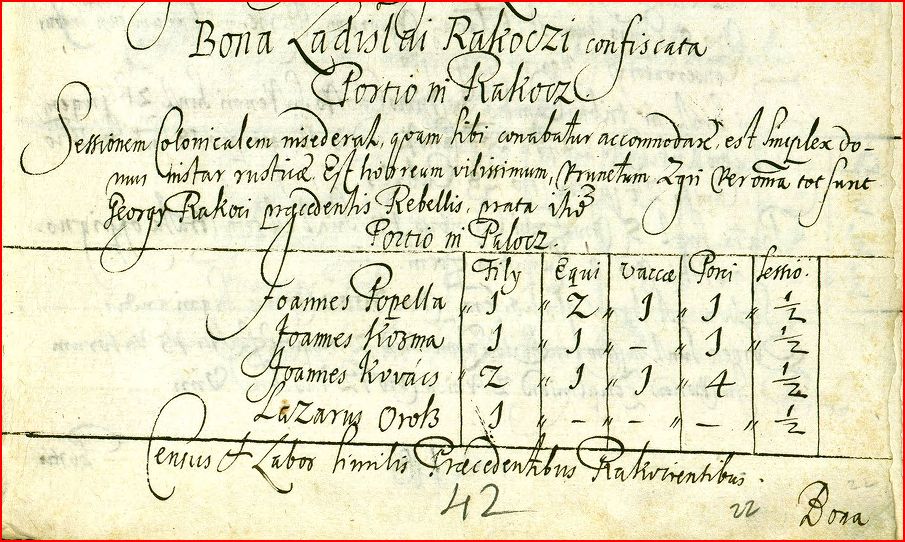 Bona Ladislai Rakoczi confiscata
Portio in Rakocz
Sessionem Colonicalem misederat, quam sibi conabatur accommodare, est simplex do-
mus instar rusticæ. Est horreum vilissimum, Prunetum Agri Per omnia tot sunt
Georgy Rakoci præcedentis Rebellis, prata
Portio in Palocz.
Fily Equi Vaccæ Porci sessio.
Joannes Popella „ 1 „ 2 „ 1 „ 1 „ ½
Joannes Kozma 1 „ 1 „ – „ 1 „ ½
Joannes Kovács „ 2 „ 1 „ 1 „ 4 „ ½
Lazarus Orosz 1 „ – „ – „ – „ ½
Census et Labor similis Præcedentibus Rakocientibus.
42 22
Bona